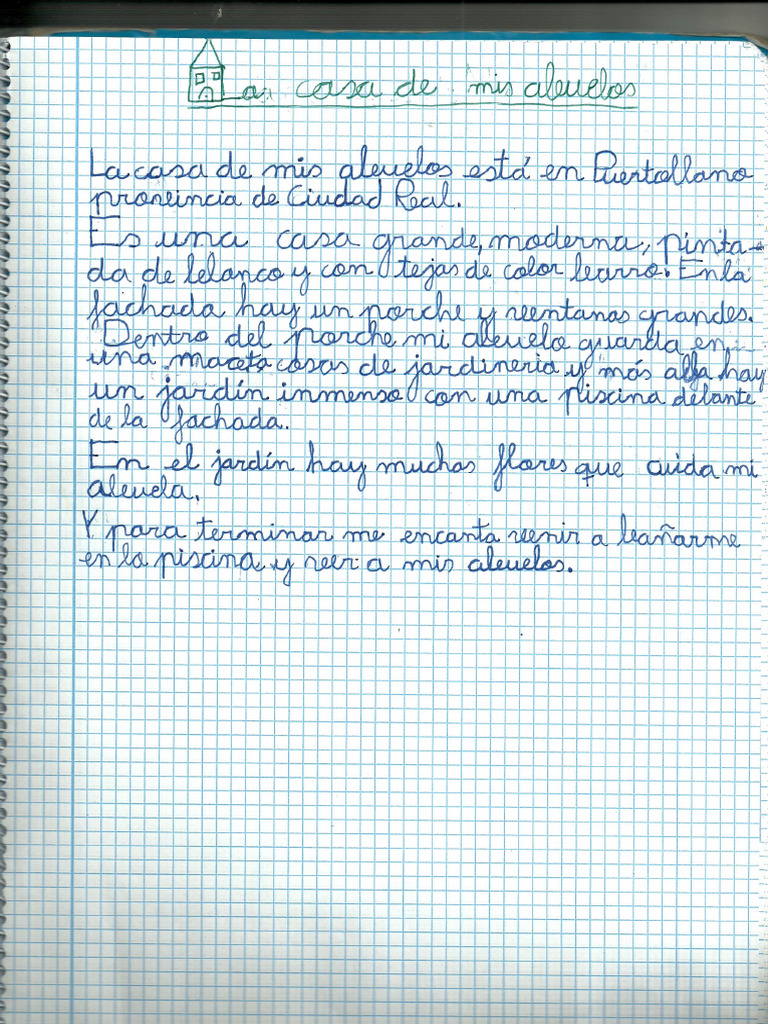 La casa de mis abuelos
La casa de mis abuelos está en Puertollano
provincia de Ciudad Real.
Es una casa grande, moderna, pinta-
da de blanco y con tejas de color barro. En la
fachada hay un porche y ventanas grandes.
Dentro del porche mi abuelo guarda en
una maceta cosas de jardineria y más alla hay
un jardín inmenso con una piscina delante
de la fachada.
En el jardín hay muchas flores que cuida mi
abuela.
Y para terminar me encanta venir a bañarme
en la piscina y ver a mis abuelos.